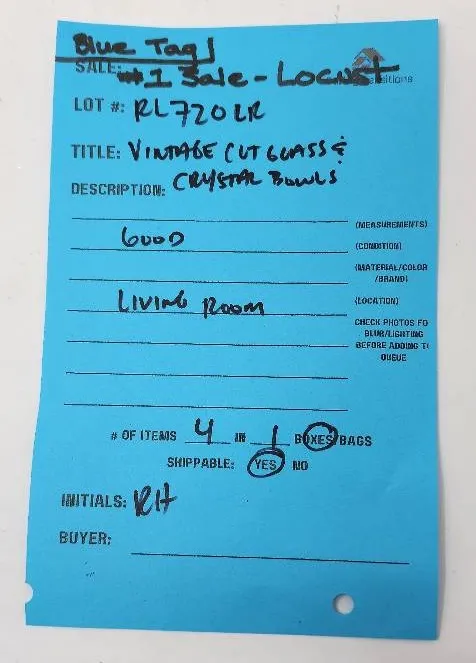 Blue Tag
SALE: #1 Sale - LOCUST
LOT #: RL720LR
TITLE: VINTAGE CUT GLASS &
DESCRIPTION: CRYSTAL BOWLS
(MEASUREMENTS)
GOOD (CONDITION)
(MATERIAL/COLOR
/BRAND)
LIVING ROOM (LOCATION)
CHECK PHOTOS FO
BLUR/LIGHTING
BEFORE ADDING TO
QUEUE
# OF ITEMS 4 IN 1 BOXES/BAGS
SHIPPABLE: YES NO
INITIALS: RH
BUYER: